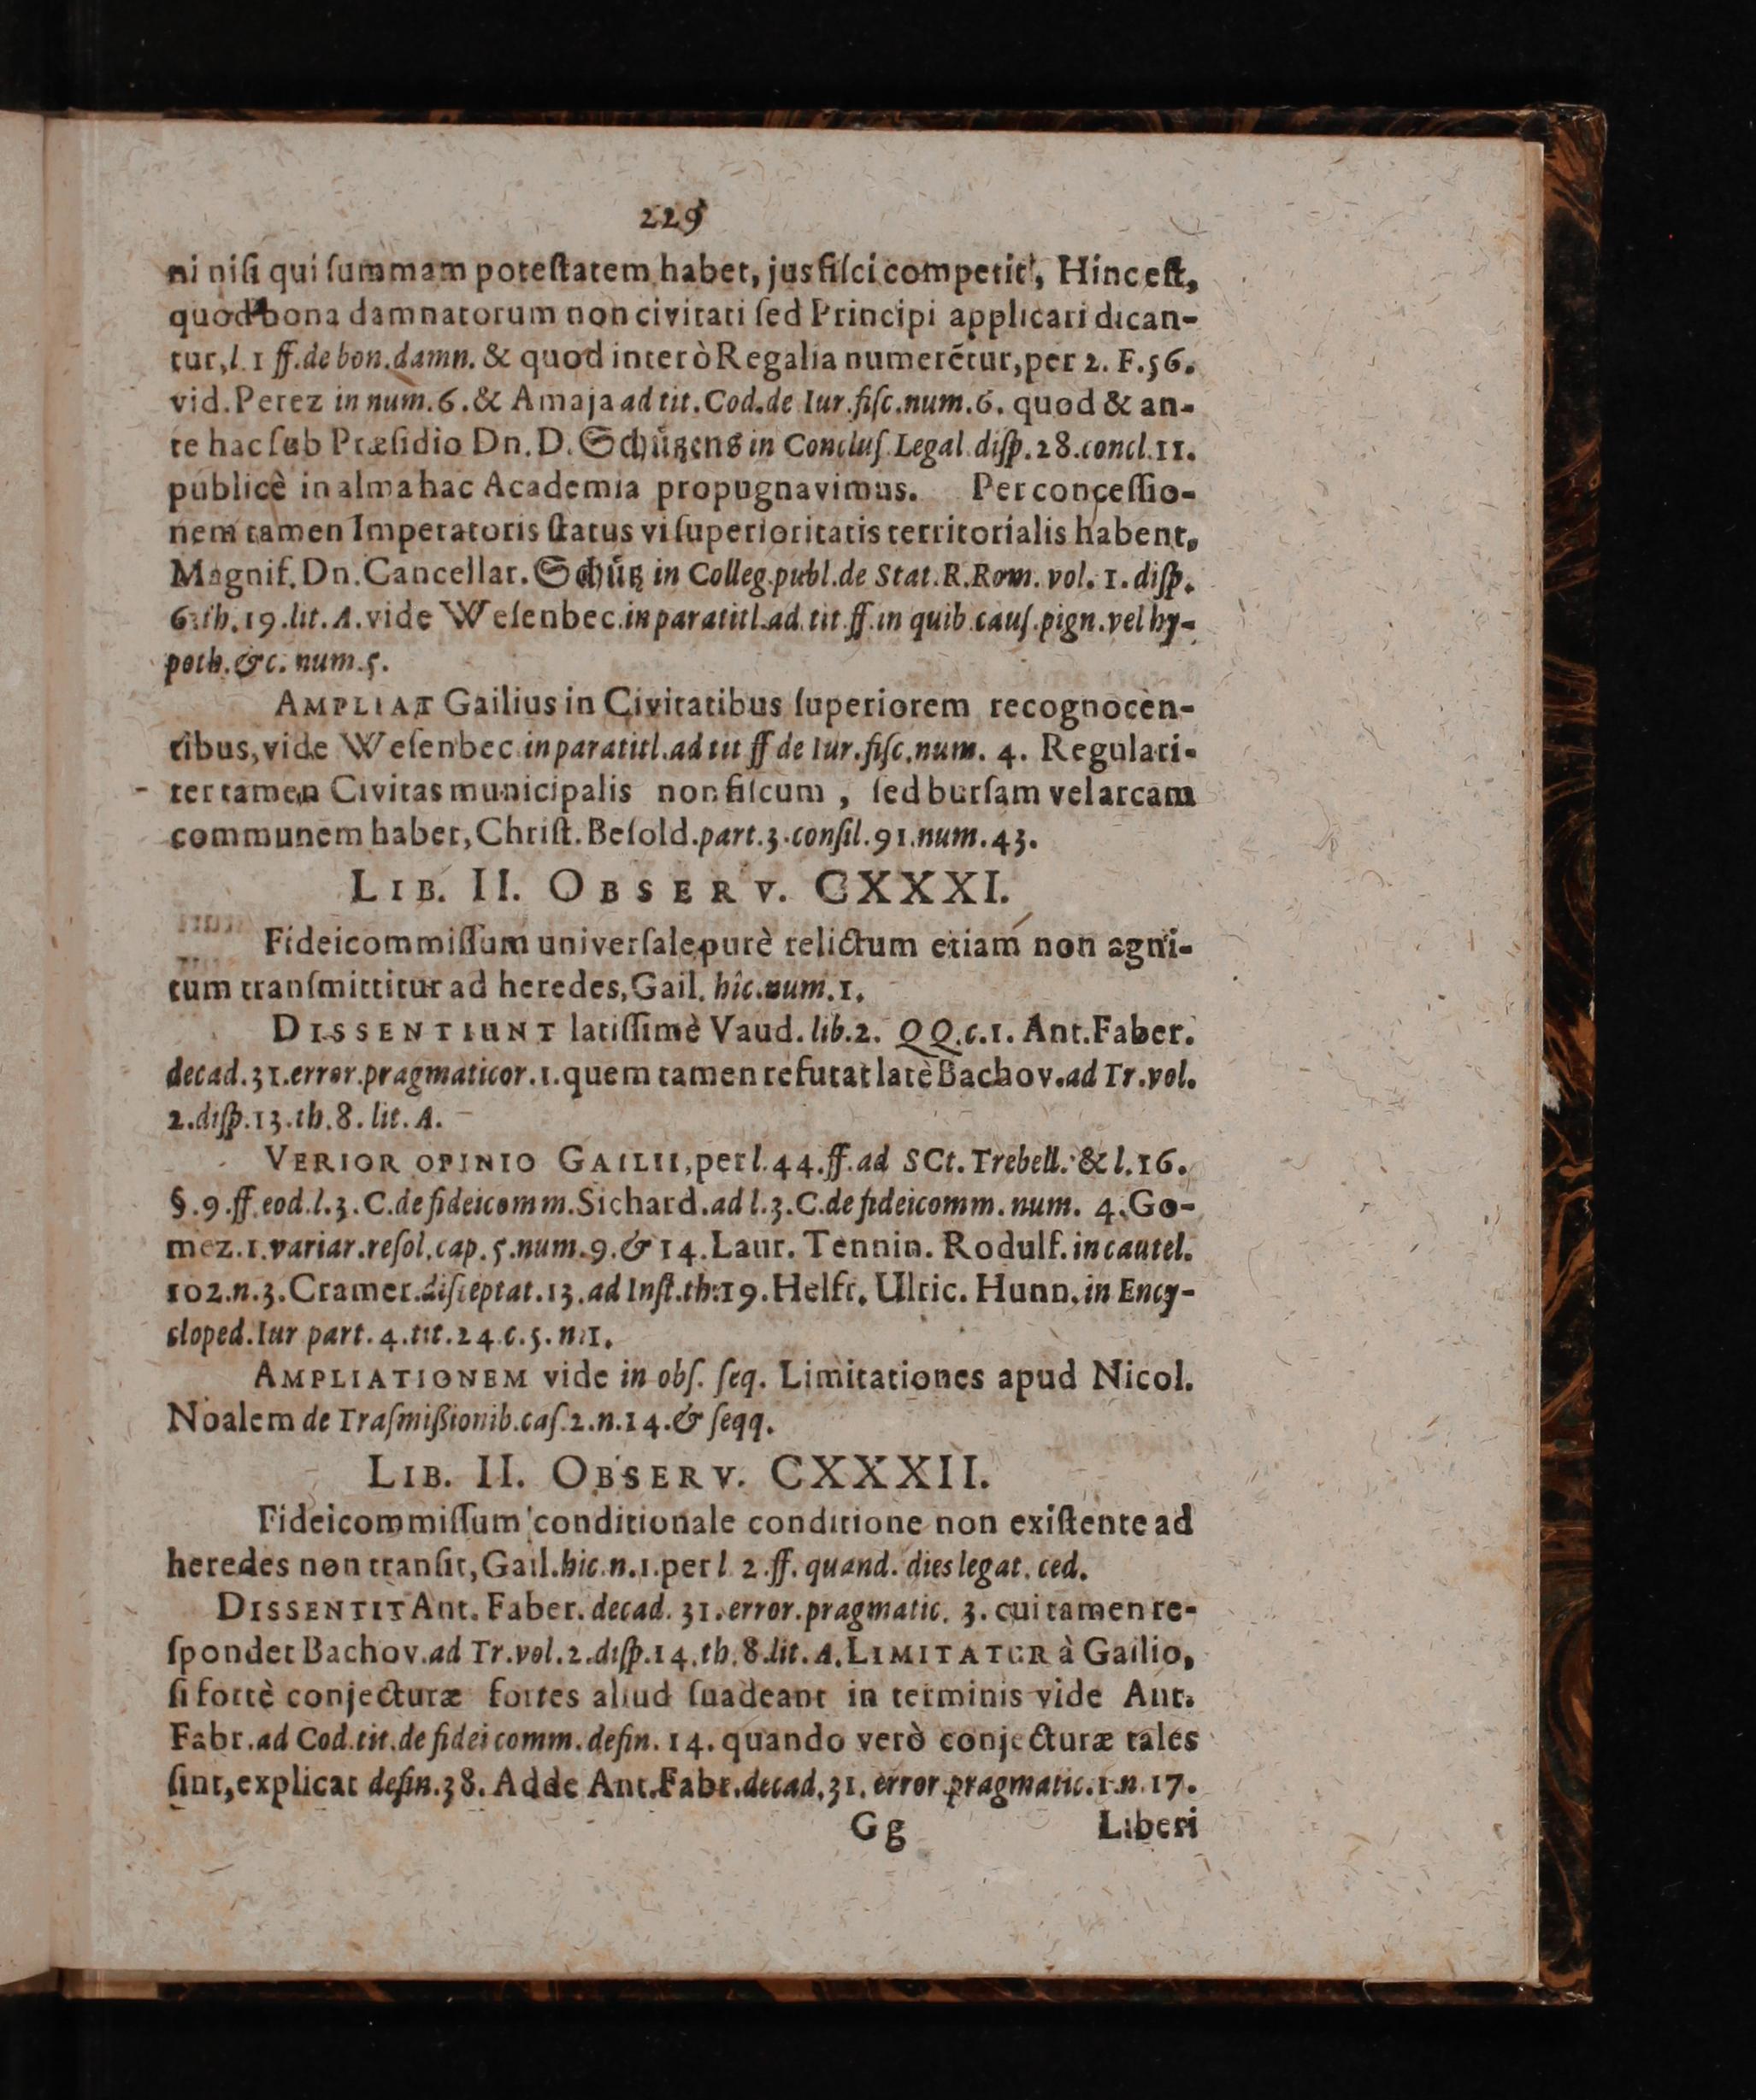 229
ni niſi qui ſummam poteſtatem habet, jus fiſci competit, Hinc eſt,
quod bona damnatorum non civitati ſed Principi applicari dican-
tur, l. 1 ff. de bon. damn. & quod inter ò Regalia numerẽtur, per 2. F. 56.
vid. Perez in num. 6. & Amaja ad tit. Cod. de Iur. fiſc. num. 6. quod & an-
te hac ſub Præſidio Dn. D. Schützens in Concluſ. Legal. diſp. 28. concl. 11.
publicè in alma hac Academia propugnavimus. Per conceſſio-
nem tamen Imperatoris ſtatus vi ſuperioritatis territorialis habent,
Magnif. Dn. Cancellar. Schütz in Colleg. publ. de Stat. R. Rom. vol. 1. diſp.
6. th. 19. lit. A. vide Weſenbec. in paratitl. ad. tit. ff. in quib. cauſ. pign. vel hy-
poth. &c. num. 5.
AMPLIAT Gailius in Civitatibus ſuperiorem recognocen-
tibus, vide Weſenbec in paratitl. ad tit ff de Iur. fiſc. num. 4. Regulari-
ter tamen Civitas municipalis non fiſcum, ſed burſam vel arcam
communem habet, Chriſt. Beſold. part. 3. conſil. 91. num. 43.
LIB. II. OBSERV. CXXXI.
Fideicommiſſum univerſale purè relictum etiam non agni-
tum tranſmittitur ad heredes, Gail. hic. num. 1.
DISSENTIUNT latiſſimè Vaud. lib. 2. QQ. c. 1. Ant. Faber.
decad. 31. error. pragmaticor. 1. quem tamen refutat latè Bachov. ad Tr. vol.
2. diſp. 13. th. 8. lit. A.
VERIOR OPINIO GAILII, per l. 44. ff. ad SCt. Trebell. & l. 16.
§. 9. ff. eod. l. 3. C. de fideicomm. Sichard. ad l. 3. C. de fideicomm. num. 4. Go-
mez. 1. variar. reſol. cap. 5. num. 9. & 14. Laur. Tennin. Rodulf. in cautel.
102. n. 3. Cramer. diſceptat. 13. ad Inſt. th. 19. Helfr. Ulric. Hunn. in Ency-
cloped. Iur part. 4. tit. 24. c. 5. n. 1.
AMPLIATIONEM vide in obſ. ſeq. Limitationes apud Nicol.
Noalem de Traſmißionib. caſ. 2. n. 14. & ſeqq.
LIB. II. OBSERV. CXXXII.
Fideicommiſſum conditionale conditione non exiſtente ad
heredes non tranſit, Gail. hic. n. 1. per l. 2. ff. quand. dies legat. ced.
DISSENTIT Ant. Faber. decad. 31. error. pragmatic. 3. cui tamen re-
ſpondet Bachov. ad Tr. vol. 2. diſp. 14. th. 8. lit. A. LIMITATUR à Gailio,
ſi fortè conjecturæ fortes aliud ſuadeant in terminis vide Ant.
Fabr. ad Cod. tit. de fidei comm. defin. 14. quando verò conjecturæ tales
ſint, explicat defin. 38. Adde Ant. Fabr. decad. 31. error. pragmatic. 1. n. 17.
Gg Liberi